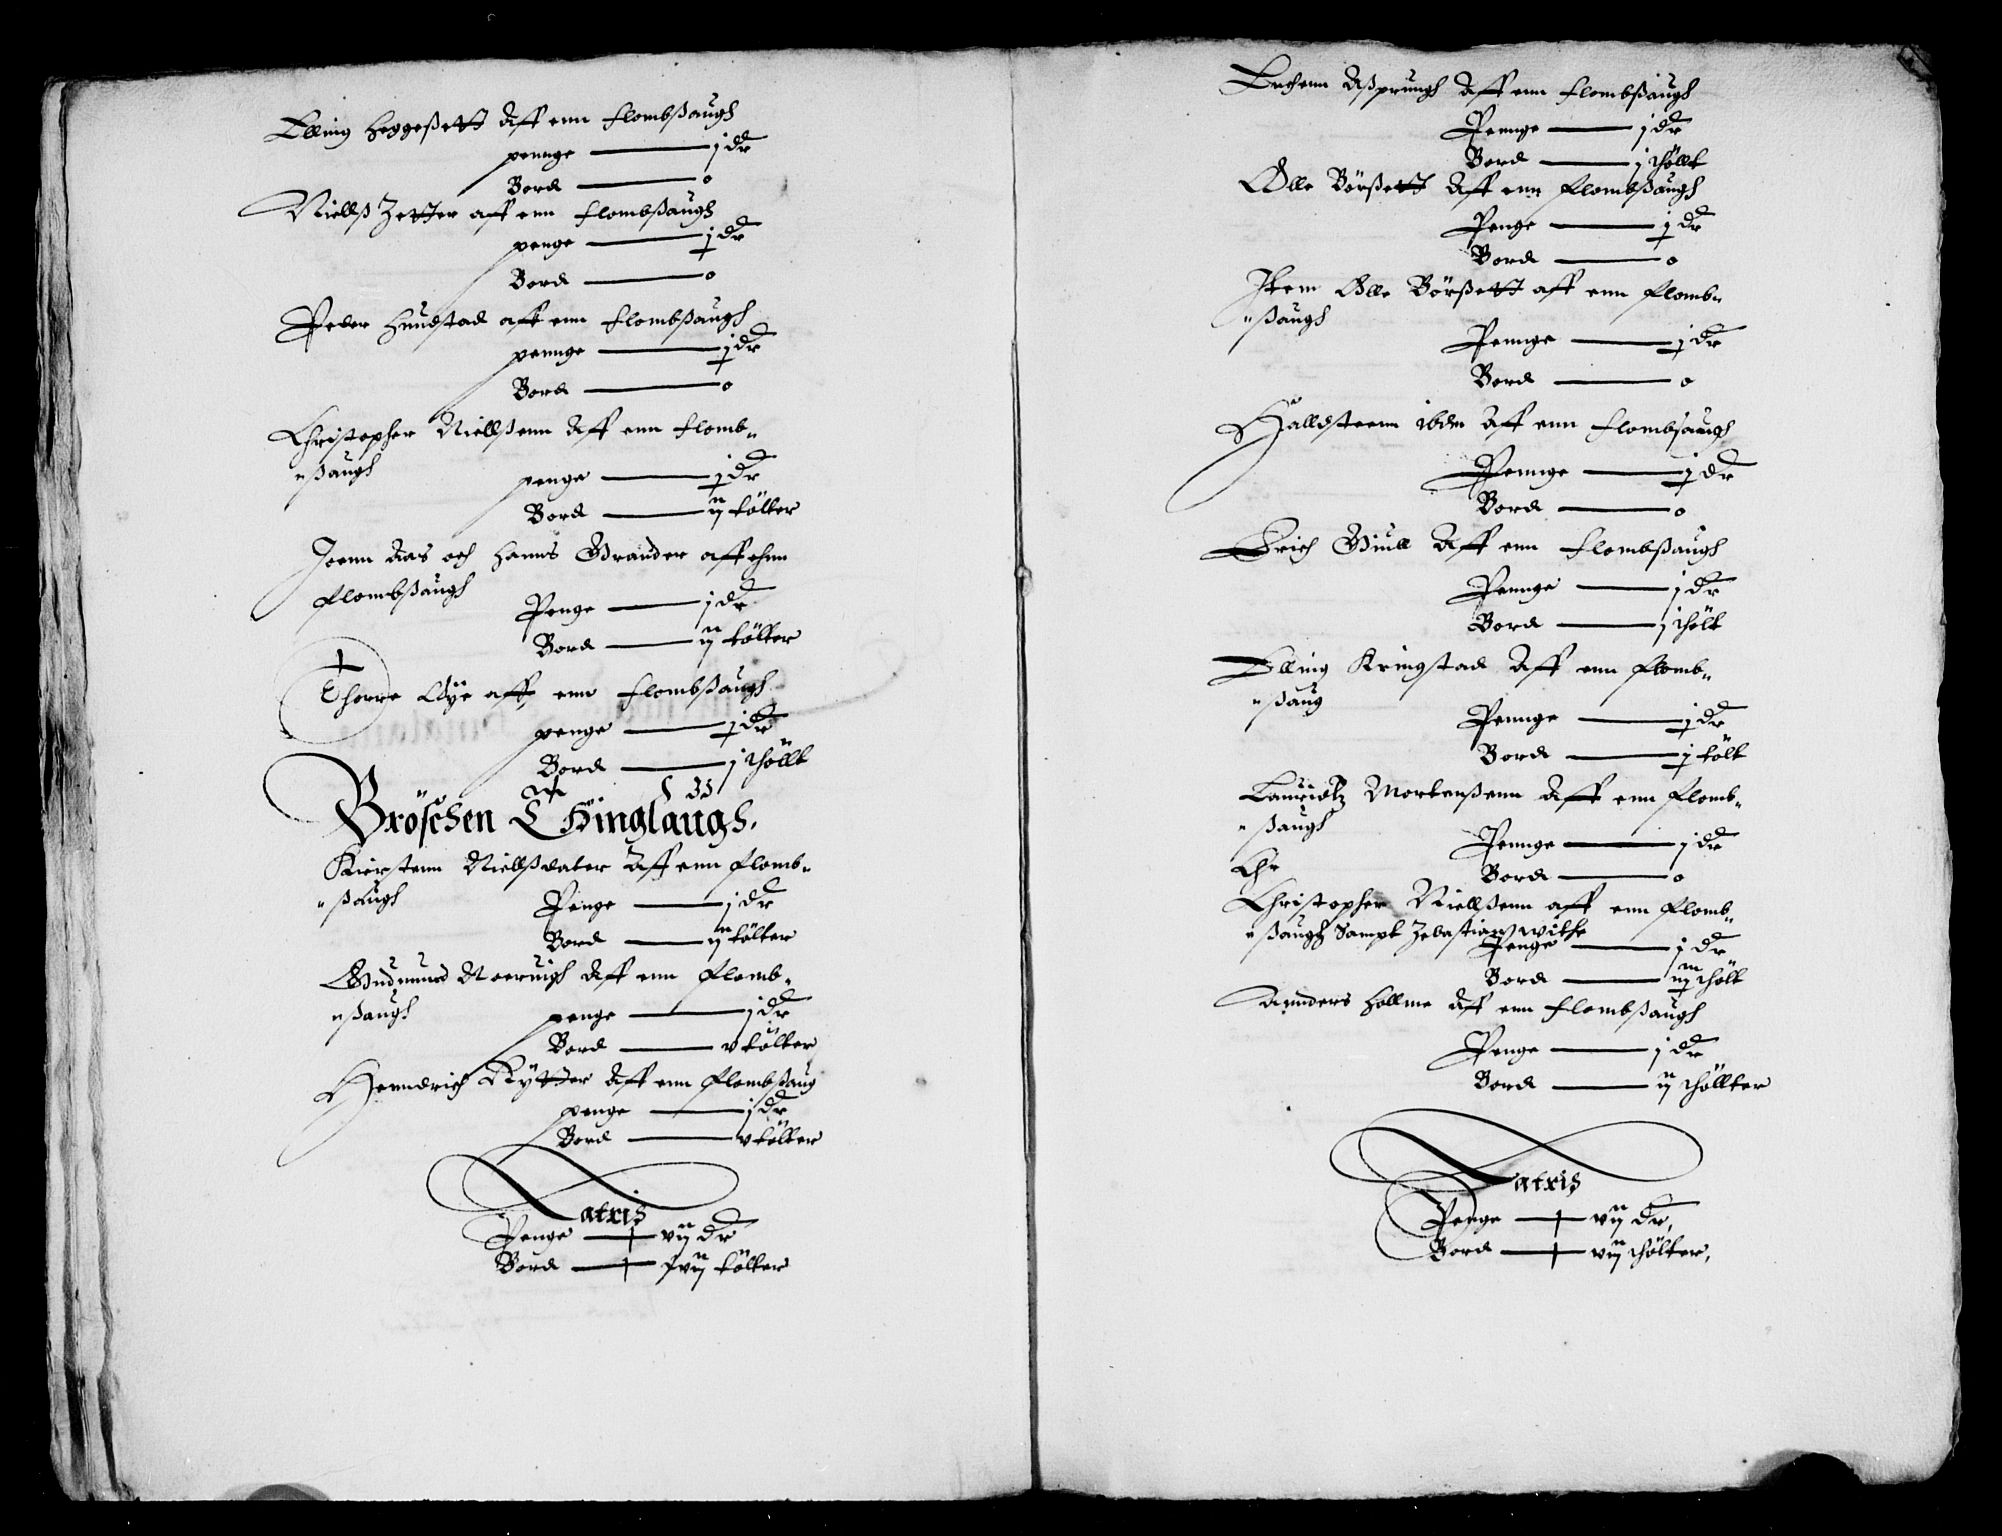 Elling Heggeßett Aff enn flombßaugh
pennge — j dr
Bord — 0
Niellß Zetter aff enn flombßaugh
penge — j dr
Bord — 0
Peder Hundstad aff enn flombßaugh
pennge — j dr
Bord — 0
Christopher Niellßenn Aff enn flomb-
ßaugh
penge — j dr
Bord — ij tølter
Joenn Aas och Hanns Strander aff ehnn
flombßaugh
Penge — j dr
Bord — ij tølter
Thorre Øye aff enn flombßaugh
penge — j dr
Bord — j thøllt
Bröschen Thinglaugh.
Kierstenn Niellßdater Aff enn flomb-
ßaugh
Penge — j dr
Bord — ij tølter
Gudmund Noeruigh Aff enn flomb-
ßaugh
penge — j dr
Bord — v tølter
Henndrich Rytter Aff enn flombßaug
penge — j dr
Bord — v tølter
Latris
Penge — vij dr
Bord — xvij tølter
Enchenn Aßprungh Aff enn flombßaugh
Pennge — j dr
Bord — j thøllt
Olle Börßett Aff enn flombßaugh
Penge — j dr
Bord — 0
Item Olle Börßett aff enn flomb-
ßaugh
Pennge — j dr
Bord — 0
Halldsteenn ibdm Aff enn flombsaugh
Pennge — j dr
Bord — 0
Erich Giull Aff enn flombßaugh
Pennge — j dr
Bord — j thølt
Elling Kringstad Aff enn flomb-
ßaug
Pennge — j dr
Bord — j tølt
Lauridtz Mortenßenn Aff enn flomb-
ßaugh
Pennge — j dr
Chr
Bord — 0
Christopher Niellßenn aff enn flomb-
ßaugh Sampt Zebastian withe
Penge — j dr
Bord — iij thølt
Annders Hollme Aff enn flombßaugh
Penge — j dr
Bord — ij thøllter
Latris
Penge — vij dr,
Bord — vij thølter,